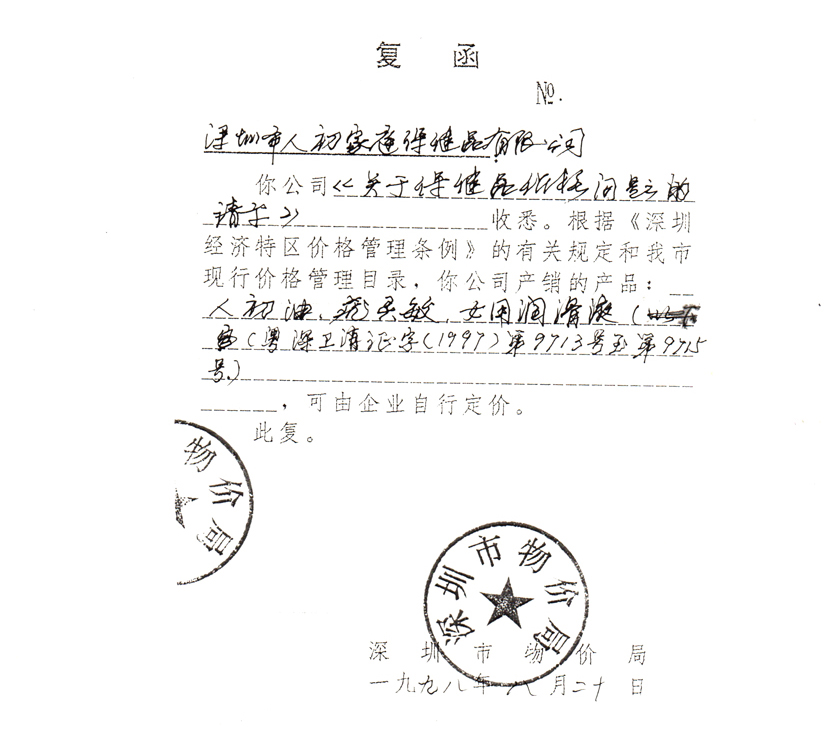 复 函
№.
深圳市人初家庭保健品有限公司
你公司《关于保健品价格问题的
请示》收悉。根据《深圳
经济特区价格管理条例》的有关规定和我市
现行价格管理目录，你公司产销的产品：
人初油、灵敏、女用润滑液（
（粤深卫消证字（1997）第9713号至第9715
号）
，可由企业自行定价。
此复。
物价局
深圳市物价局
深圳市物价局
一九九八年八月二十日